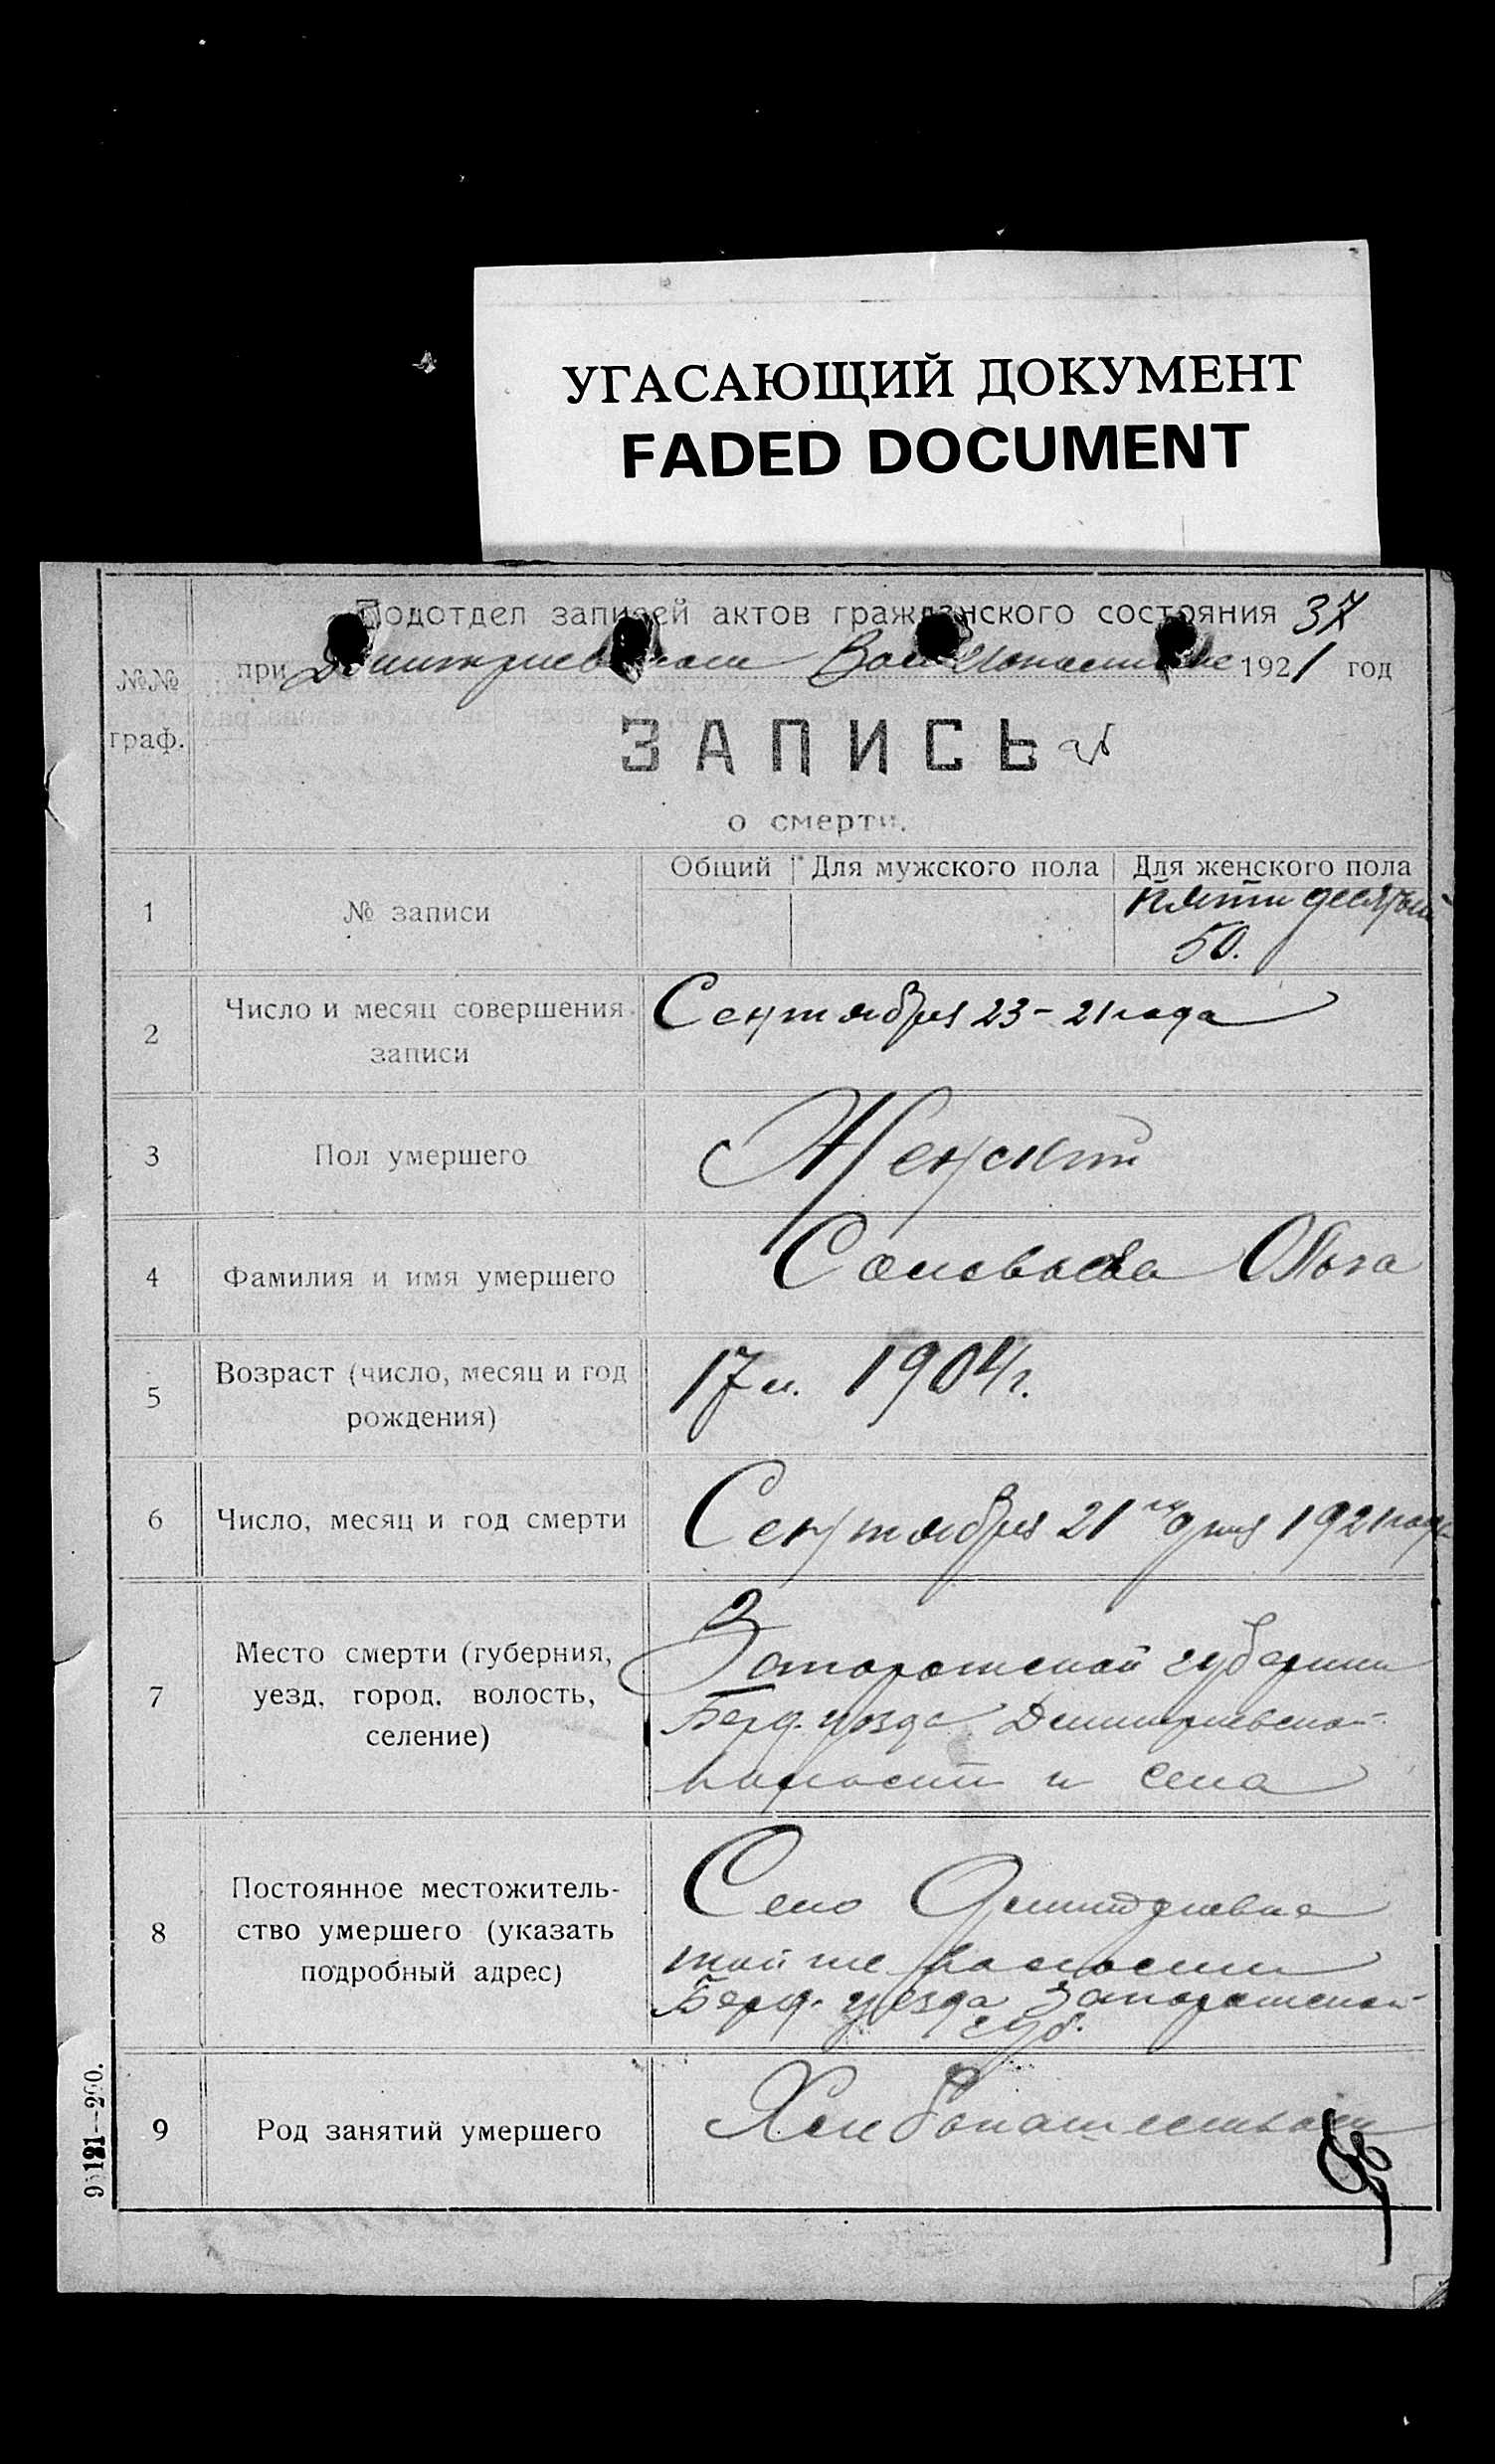 УГАСАЮЩИЙ ДОКУМЕНТ
FADED DOCUMENT
Подотдел записей актов гражданского состояния 37
при Дмитриевском Вол 1921 год
№№ граф.
ЗАПИСЬ
о смерти.
Общий Для мужского пола Для женского пола
1 № записи
пятидесятый
50.
2 Число и месяц совершения записи
Сентября 23 - 21 года
3 Пол умершего
Женский
4 Фамилия и имя умершего
Соловьева Ольга
5 Возраст (число, месяц и год рождения)
17 л. 1904 г.
6 Число, месяц и год смерти
Сентября 21го дня 1921 года
7 Место смерти (губерния, уезд, город, волость, селение)
Запорожской губернии
Берд. уезда Дмитриевской
волости и села
8 Постоянное местожительство умершего (указать подробный адрес)
Село Дмитриевка
той же волости
Берд. уезда Запорожской
губ.
9 Род занятий умершего
Хлебопашеством